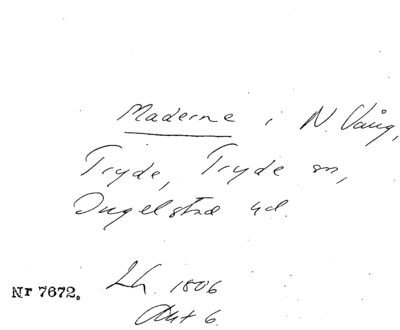 Maderne i N. Vång,
Tryde, Tryde sn,
Ingelstad hd.
Lh. 1806
Akt 6.
Nr 7672.